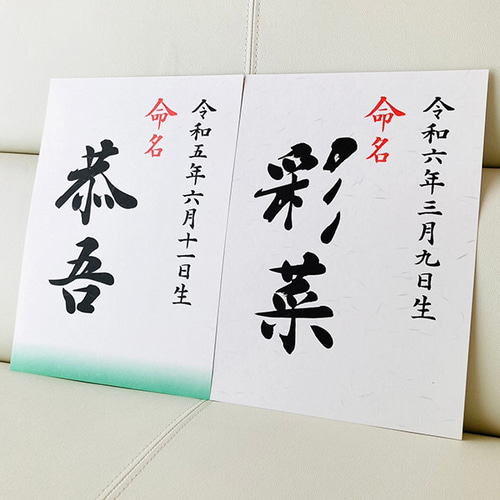 命名
恭吾
令和五年六月十一日生
命名
彩菜
令和六年三月九日生